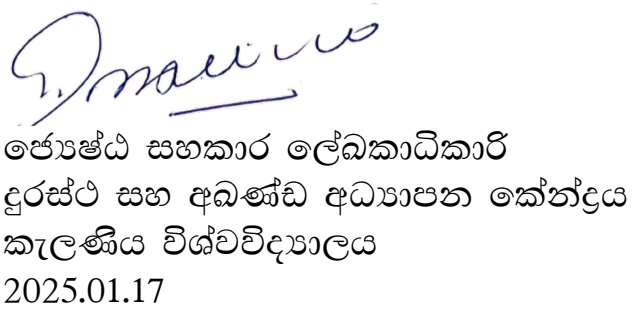 ජ්‍යෙෂ්ඨ සහකාර ලේඛකාධිකාරි
දුරස්ථ සහ අඛණ්ඩ අධ්‍යාපන කේන්ද්‍රය
කැලණිය විශ්වවිද්‍යාලය
2025.01.17